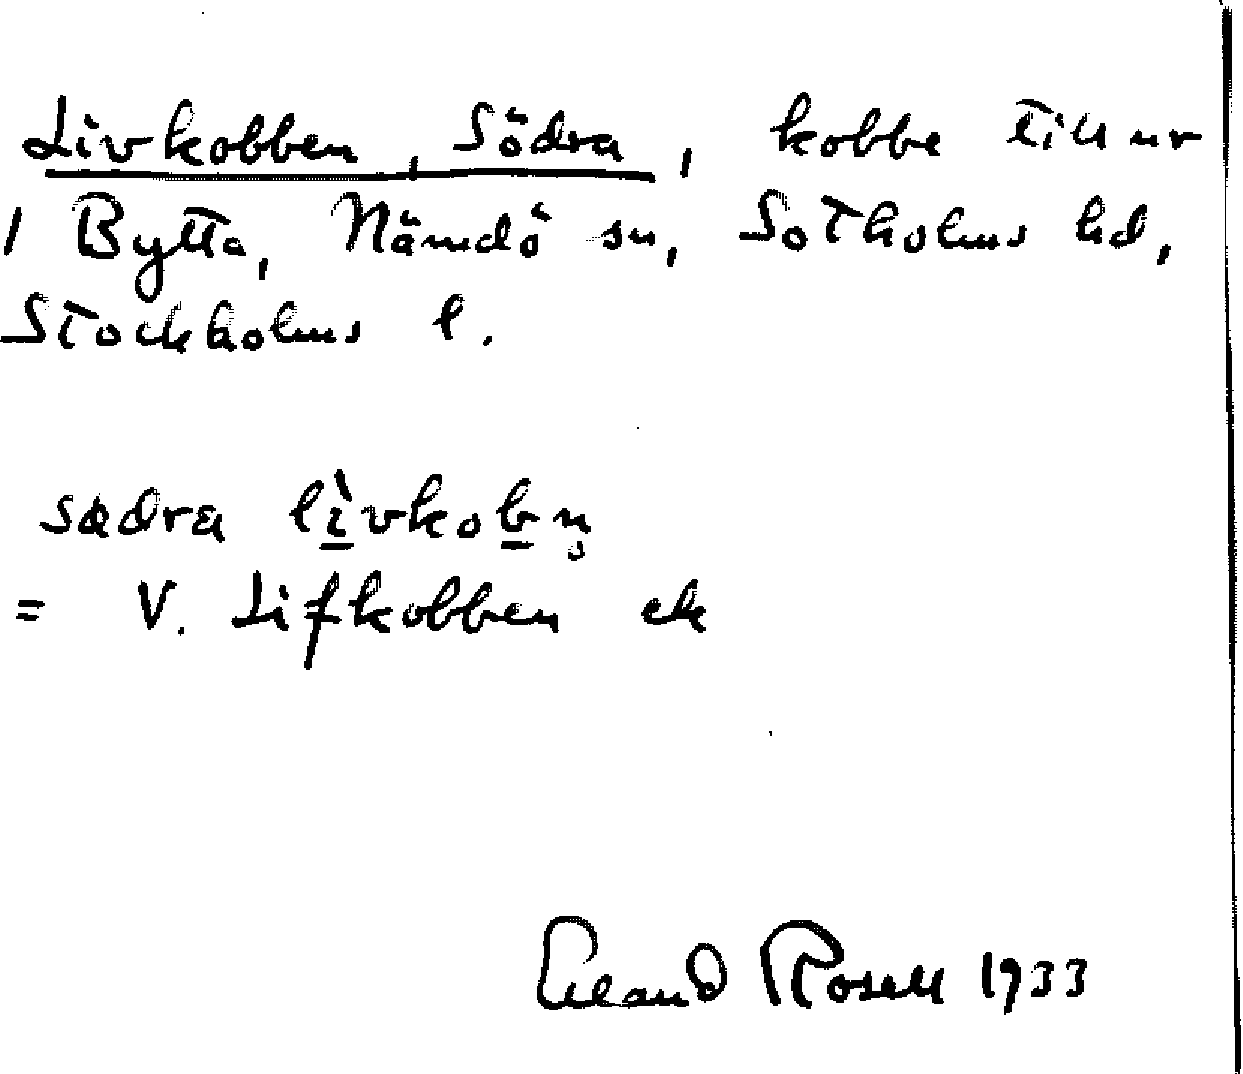 Livkobben, Södra, kobbe till nr
1 Bytta, Nämdö sn, Sotholms hd,
Stockholms l.
sødra lìvkobn̥
= V. Lifkobben ek
Erland Rosell 1933